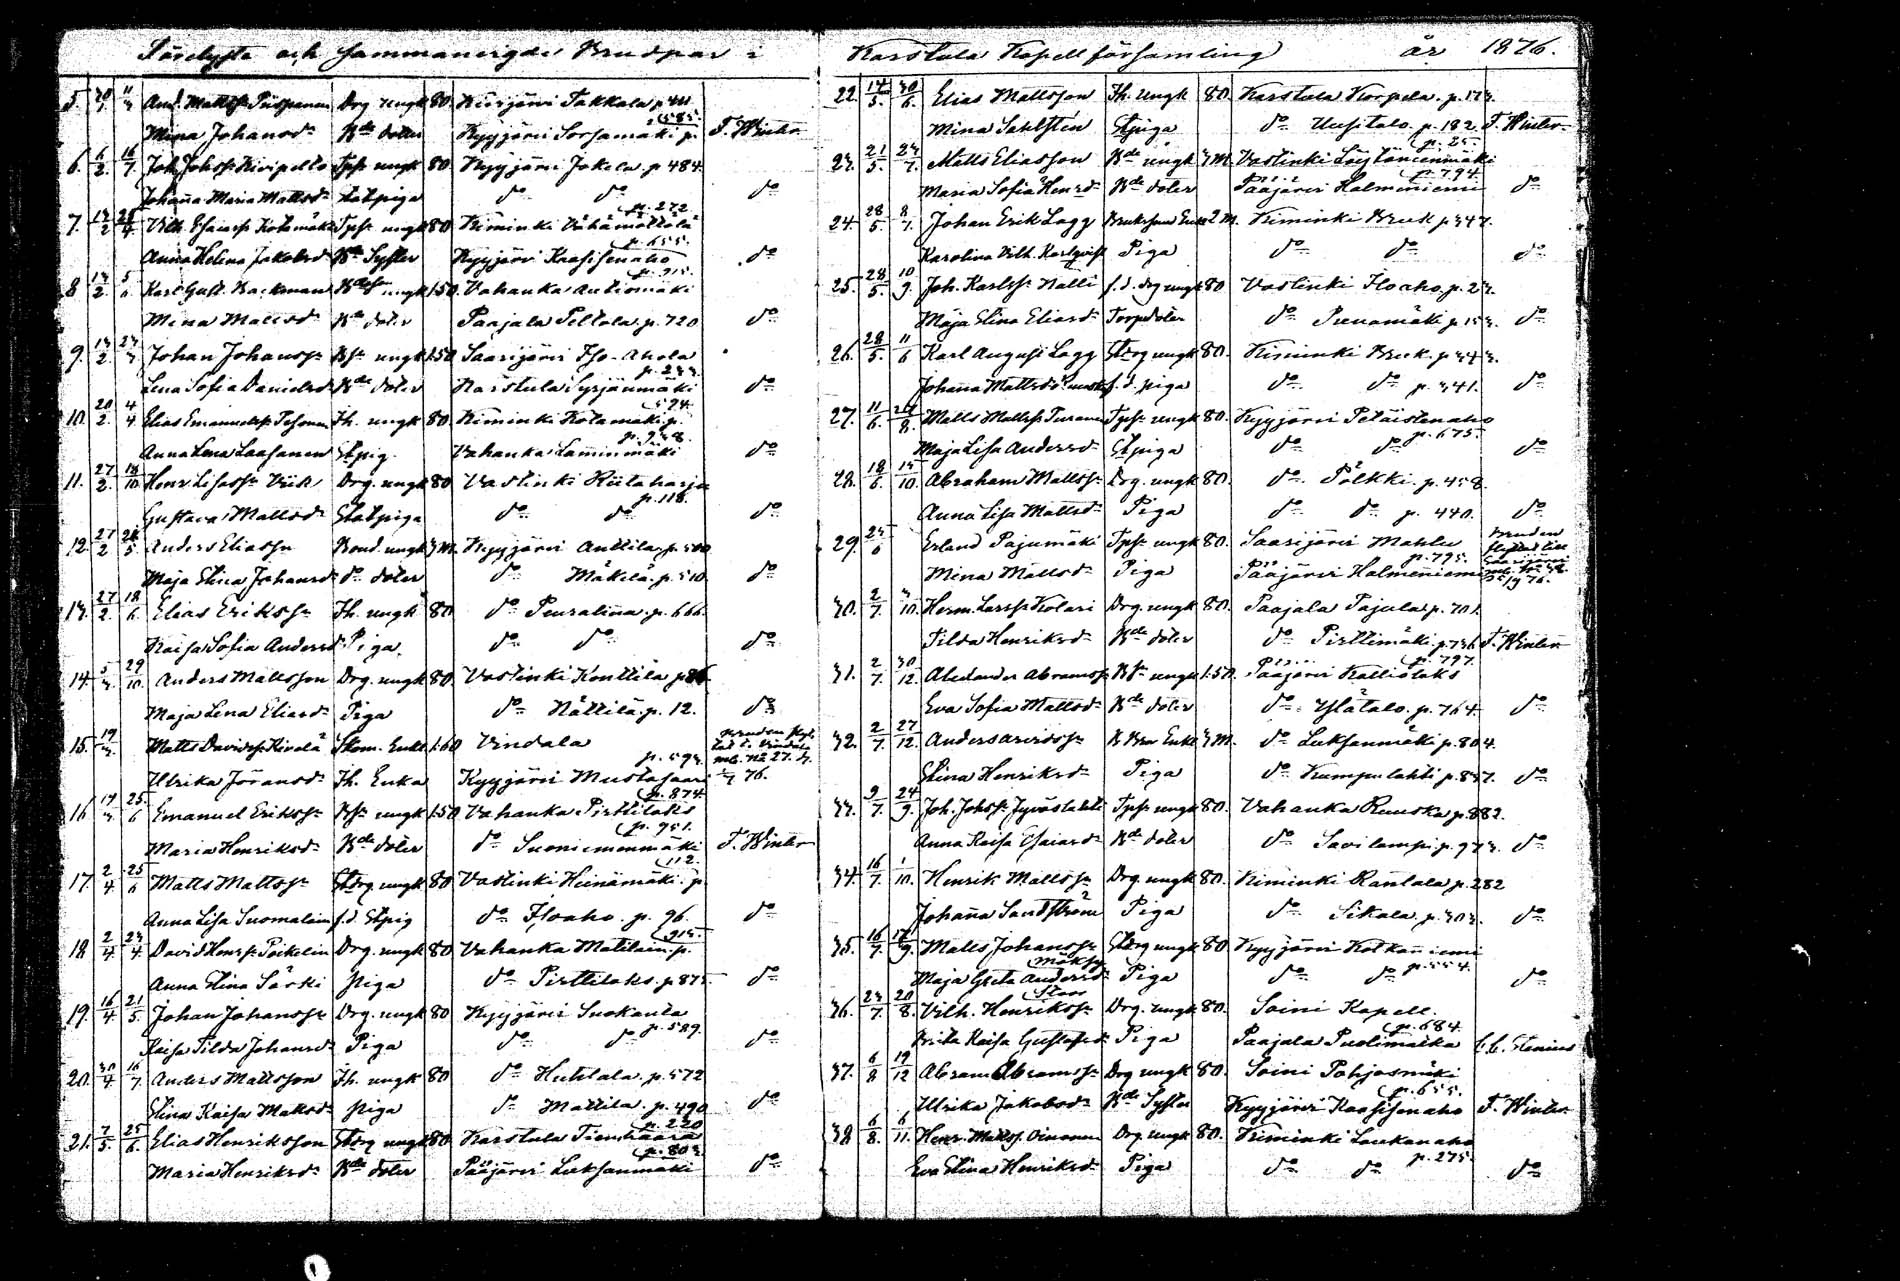 Förelyste och Sammanvigde Brudpar i
5. 30/1 11/3 And. Mattss. Piispanen Drg ungk 80 Kivijärvi Takkala p 411
Mina Johansdr Bde doter Kyyjärvi Sorsamäki p. 585. F. Winter
6. 6/2. 16/7. Joh. Johss. Kivipelto Tpss ungk 80 Kyyjärvi Jokela p 484.
Johanna Maria Mattsdr Statpiga do do do
7. 13/2 28/4 Vilh. Esaiass. Kotamäki Tpss ungk 80 Kiminki Vähämättälä p. 272
Anna Helena Jakobsd Bde Syster Kyyjärvi Kaasisenaho p. 655. do
8 13/2. 5/6 Karl Gust. Backman Bdess ungk 1.50. Vahanka Autiomäki p. 915.
Mina Mattsdr Bde doter Paajala Peltola p. 720 do
9. 13/2 23/3 Johan Johanss. Bss ungk 1.50 Saarijärvi Iso-Ahola
Lena Sofia Danielsd Bde doter Karstula Syrjänmäki p. 233. do
10. 20/2. 4/4 Elias Emanuelss. Ih. ungk 80 Kiminki Kotamäki p. 394.
Anna Lena Laasanen Stpig. Vahanka Lamminmäki p. 938. do
11. 27/2. 18/10 Henr. Lisass. Viik Drg. ungk 80 Vastinki Riitaharju
Gustava Mattsd Statpiga do do p. 118. do
12. 27/2 28/5 Anders Eliass. Bond. ungk 3 M. Kyyjärvi Anttila p. 500
Maja Stina Johansd do doter do Mäkelä p. 510. do
13. 27/2 18/6 Elias Erikss. Ih. ungk 80 do Peuralinna p. 666.
Kaisa Sofia Andersd Piga. do do do
14. 5/3. 29/10. Anders Mattsson Drg. ungk 80. Vastinki Konttila p 86.
Maja Lena Eliasd Piga do Nättilä p. 12. do
15. 19/3. Matts Davidss. Kivelä Skom. Enkl. 1.60 Vindala
Ulrika Jöransd Ih. Enka Kyyjärvi Mustasaari p. 593.
16 19/3 25/6 Emanuel Erikss. Bss ungk 1.50 Vahanka Pirttilaks p. 874
Maria Henriksd Bde doter do Suoniemenmäki p. 951. F. Winter
17. 2/4 25/6 Matts Mattss. Stdrg ungk 80 Vastinki Heinämäki p. 112.
Anna Lisa Suomalain f.d. Stpig do Isoaho. p. 96. do
18 2/4 23/4. David Henrs. Poikelin Drg. ungk 80 Vahanka Matilain p. 915.
Anna Stina Särki Piga do Pirttilaks. p. 875 do
19. 16/4 21/5. Johan Johanss. Drg. ungk 80 Kyyjärvi Suokanta
Kaisa Tilda Johansd Piga do do p. 589. do
20. 30/4. 16/7. Anders Mattsson Ih. ungk 80 do Huhtala. p. 572
Stina Kaisa Mattsd Piga do Mattila. p. 490 do
21. 7/5. 25/6. Elias Henriksson Stdrg ungk 80. Karstula Tienhaara p. 220
Maria Henriksdr Bde doter Pääjärvi Luksanmäki p. 803. do
Karstula Kapellförsamling år 1876.
22. 14/5. 30/6. Elias Mattsson Ih. ungk 80. Karstula Korpela. p. 173.
Mina Sahlstén Stpiga do Uusitalo. p. 182. F. Winter
23. 21/5 23/7. Matts Eliasson Bde ungk 3 M. Vastinki Löytänenmäki p. 25.
Maria Sofia Henrd Bde doter Pääjärvi Halmeniemi p. 794. do
24. 28/5. 8/7. Johan Erik Lagg Bruksson Enkl 2 M. Kiminki Bruk p 347.
Karolina Vilh. Karlqvist Piga do do do
25. 28/5. 10/9. Joh. Karlss. Nätti f.d. drg ungk 80 Vastinki Isoaho. p. 23.
Maja Stina Eliasd Torpdoter do Punamäki p. 153. do
26. 28/5 11/6 Karl August Lagg Stdrg ungk 80. Kiminki Bruk p. 343.
Johanna Mattsdr f.d. piga do do p. 341. do
27. 11/6. 27/8. Matts Mattss. Turanen Tpss ungk 80. Kyyjärvi Petäistenaho
Maja Lisa Andersd Stpiga do do p. 675. do
28. 18/6 15/10. Abraham Mattss. Drg. ungk 80. do Pölkki. p. 458.
Anna Lisa Mattsd Piga do do p. 440. do
29. 25/6 Erland Pajumäki Tpss ungk 80. Saarijärvi Mahlu
Mina Mattsd Piga Pääjärvi Halmeniemi p. 795.
30. 2/7. 3/10. Herm. Larss. Kolari Drg. ungk 80. Paajala Pajula p. 701
Tilda Henriksd Bde doter do Pirttimäki p. 736 F. Winter
31. 2/7. 30/12. Alexander Abramss. Bss ungk 1.50. Pääjärvi Kalliolaks p. 797.
Eva Sofia Mattsd Bde doter do Ylätalo. p. 764. do
32. 2/7. 27/12. Anders Arvidss. B Bror Enkl 3 M. do Luksanmäki p. 804.
Stina Henriksd Piga do Kumpulahti p. 837. do
33. 9/7. 24/9. Joh. Johss. Jyväslahti Tpss ungk 80. Vahanka Ruuska p. 882.
Anna Kaisa Esaiasd Bde doter do Savilampi p. 973. do
34. 16/7. 1/10. Henrik Mattss. Drg. ungk 80. Kiminki Rantala p. 282
Johanna Sandström Piga do Sikala. p. 303. do
35. 16/7. 17/9. Matts Johanss. Stdrg ungk 80 Kyyjärvi Kotkanniemi
Maja Greta Andersd Piga do do p. 554. do
36. 23/7. 20/8. Vilh. Henrikss. Drg. ungk 80. Soini Kapell.
Brita Kaisa Gustafsd Piga Paajala Puolimatka p. 684. C. C. Stenius
37. 6/8 19/12 Abram Abramss. Drg ungk 80. Soini Pohjosmäki
Ulrika Jakobsdr Bde Syster Kyyjärvi Kaasisenaho p. 655. F. Winter
38 6/8. 6/11. Henr. Mattss. Oinonen Drg. ungk 80. Kiminki Laukanaho
Eva Stina Henriksd Piga do do p. 275. do